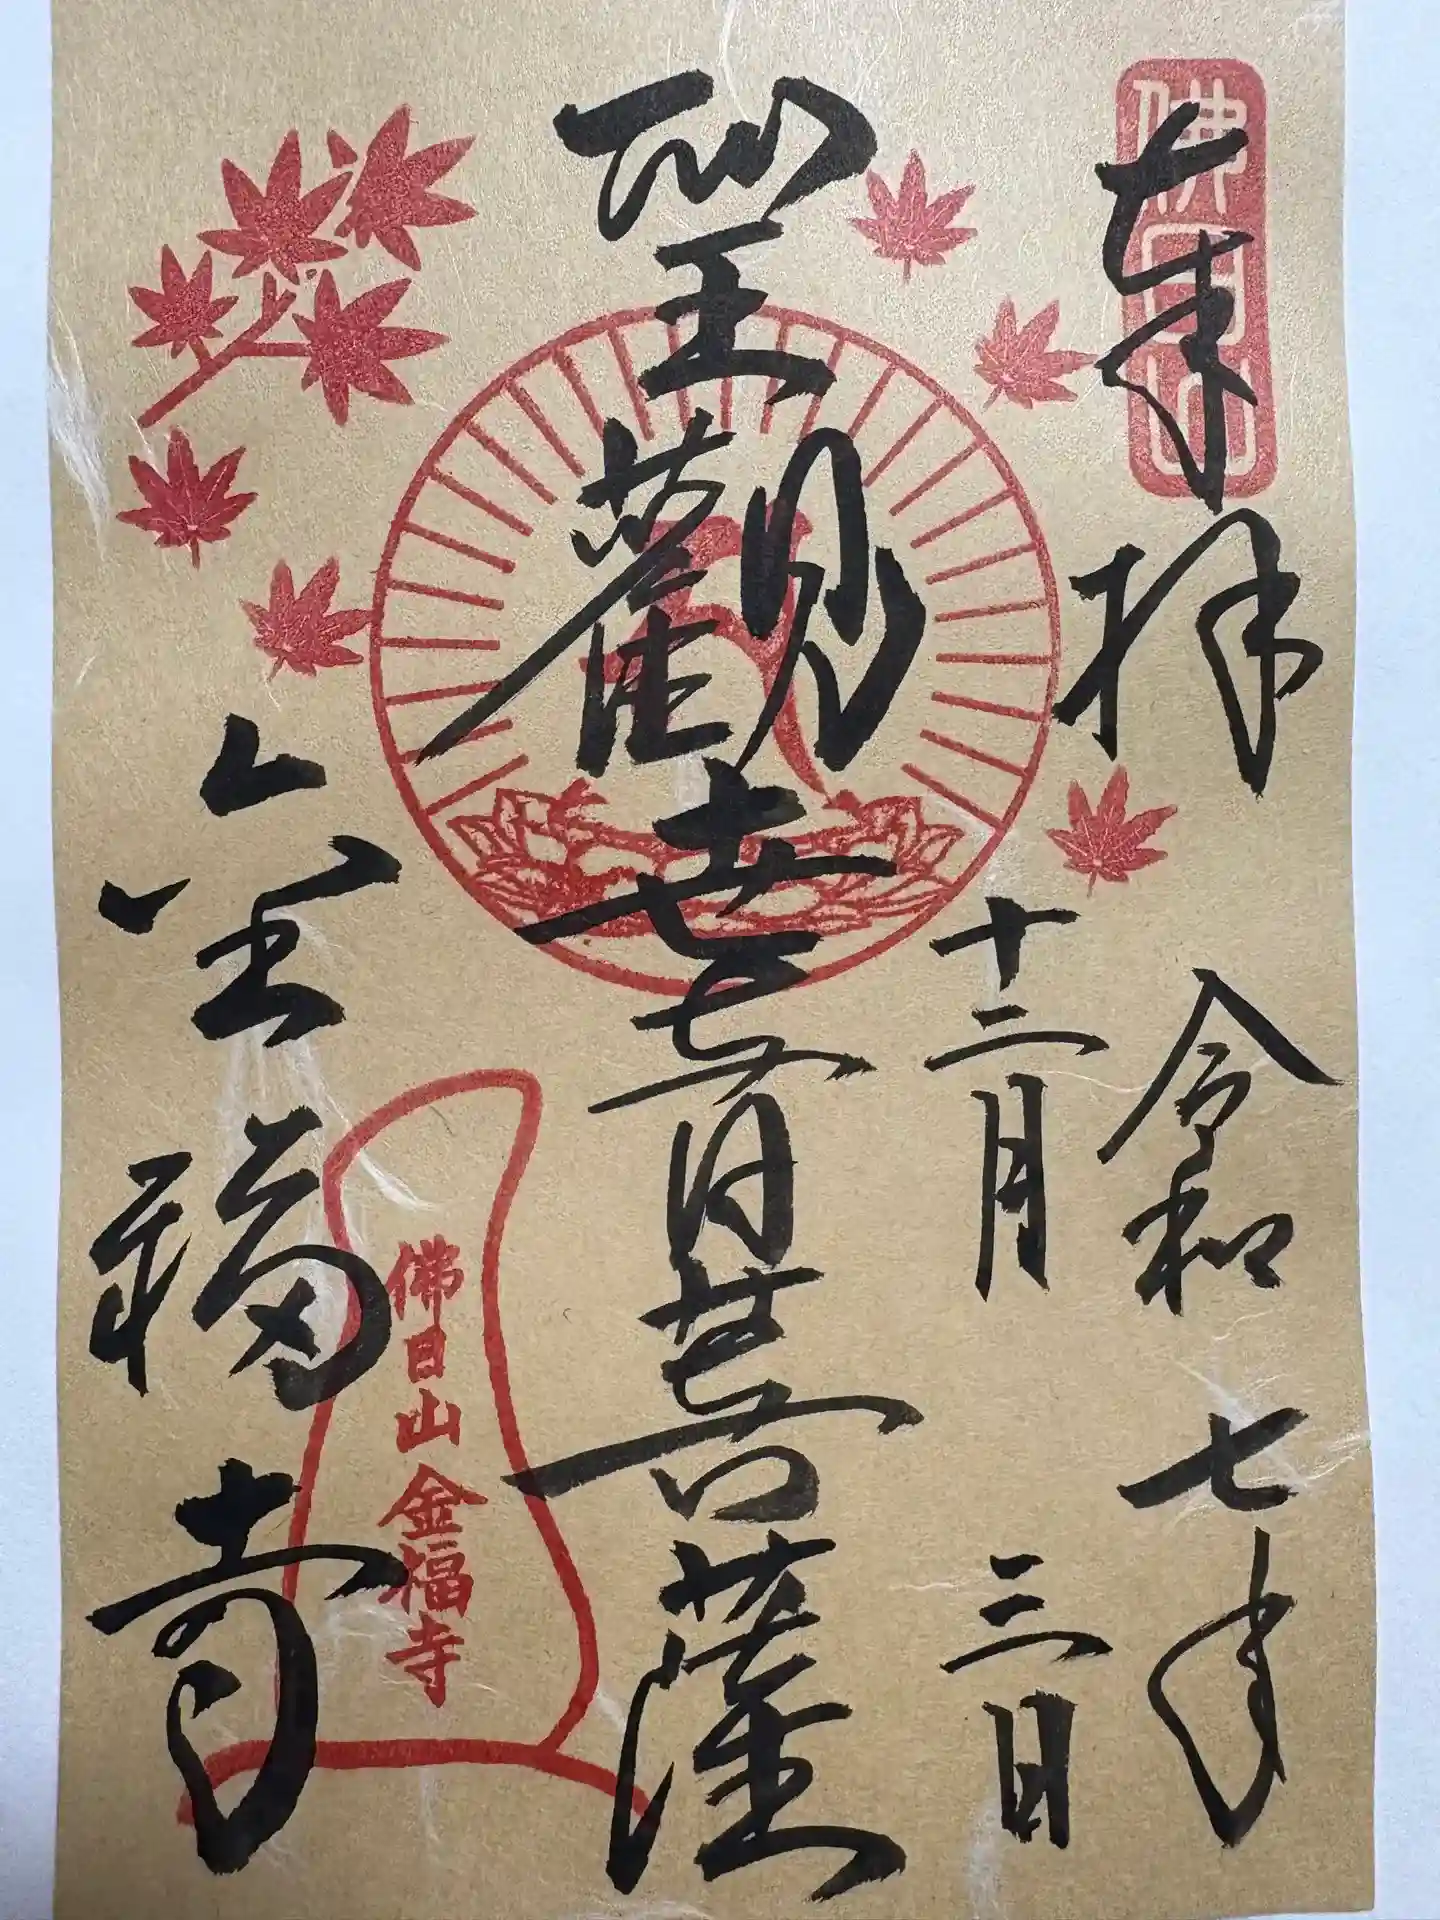 佛日山
奉拝
令和七年
十二月三日
聖観世音菩薩
金福寺
佛日山金福寺